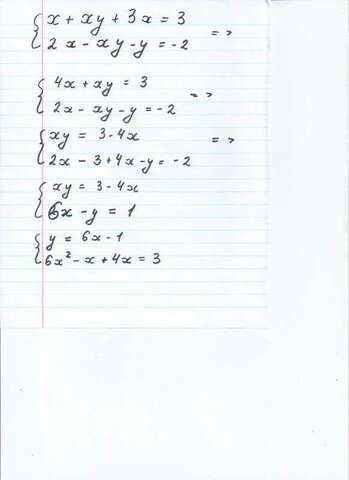 { x + xy + 3x = 3
2x - xy - y = -2 =>
{ 4x + xy = 3
2x - xy - y = -2 =>
{ xy = 3 - 4x
2x - 3 + 4x - y = -2 =>
{ xy = 3 - 4x
6x - y = 1
{ y = 6x - 1
6x² - x + 4x = 3